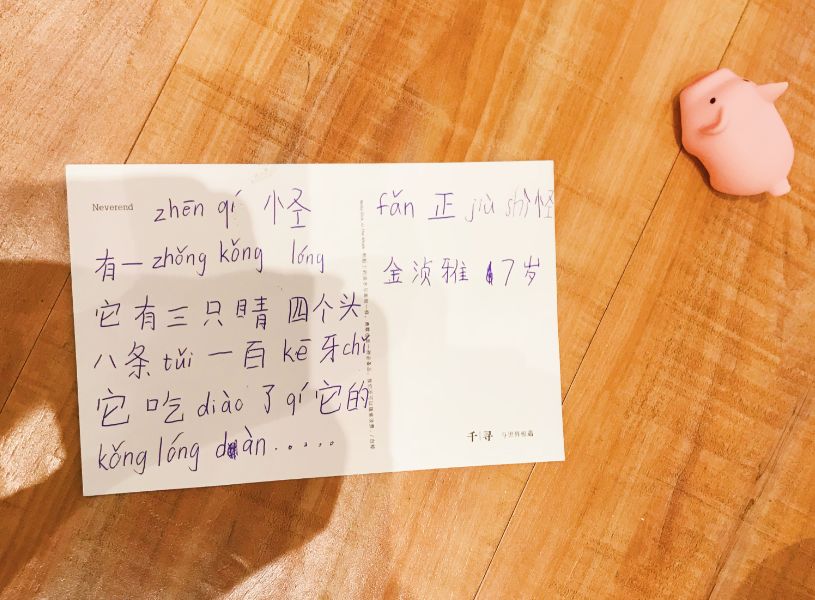 Neverend
zhēn qí 怪
有一 zhǒng kǒng lóng
它有三只睛 四个头
八条 tuǐ 一百 kē 牙 chǐ
它吃 diào 了 qí 它的
kǒng lóng dàn......
fǎn 正 jiù shì 怪
金浈雅 7岁
千寻 与世界相遇